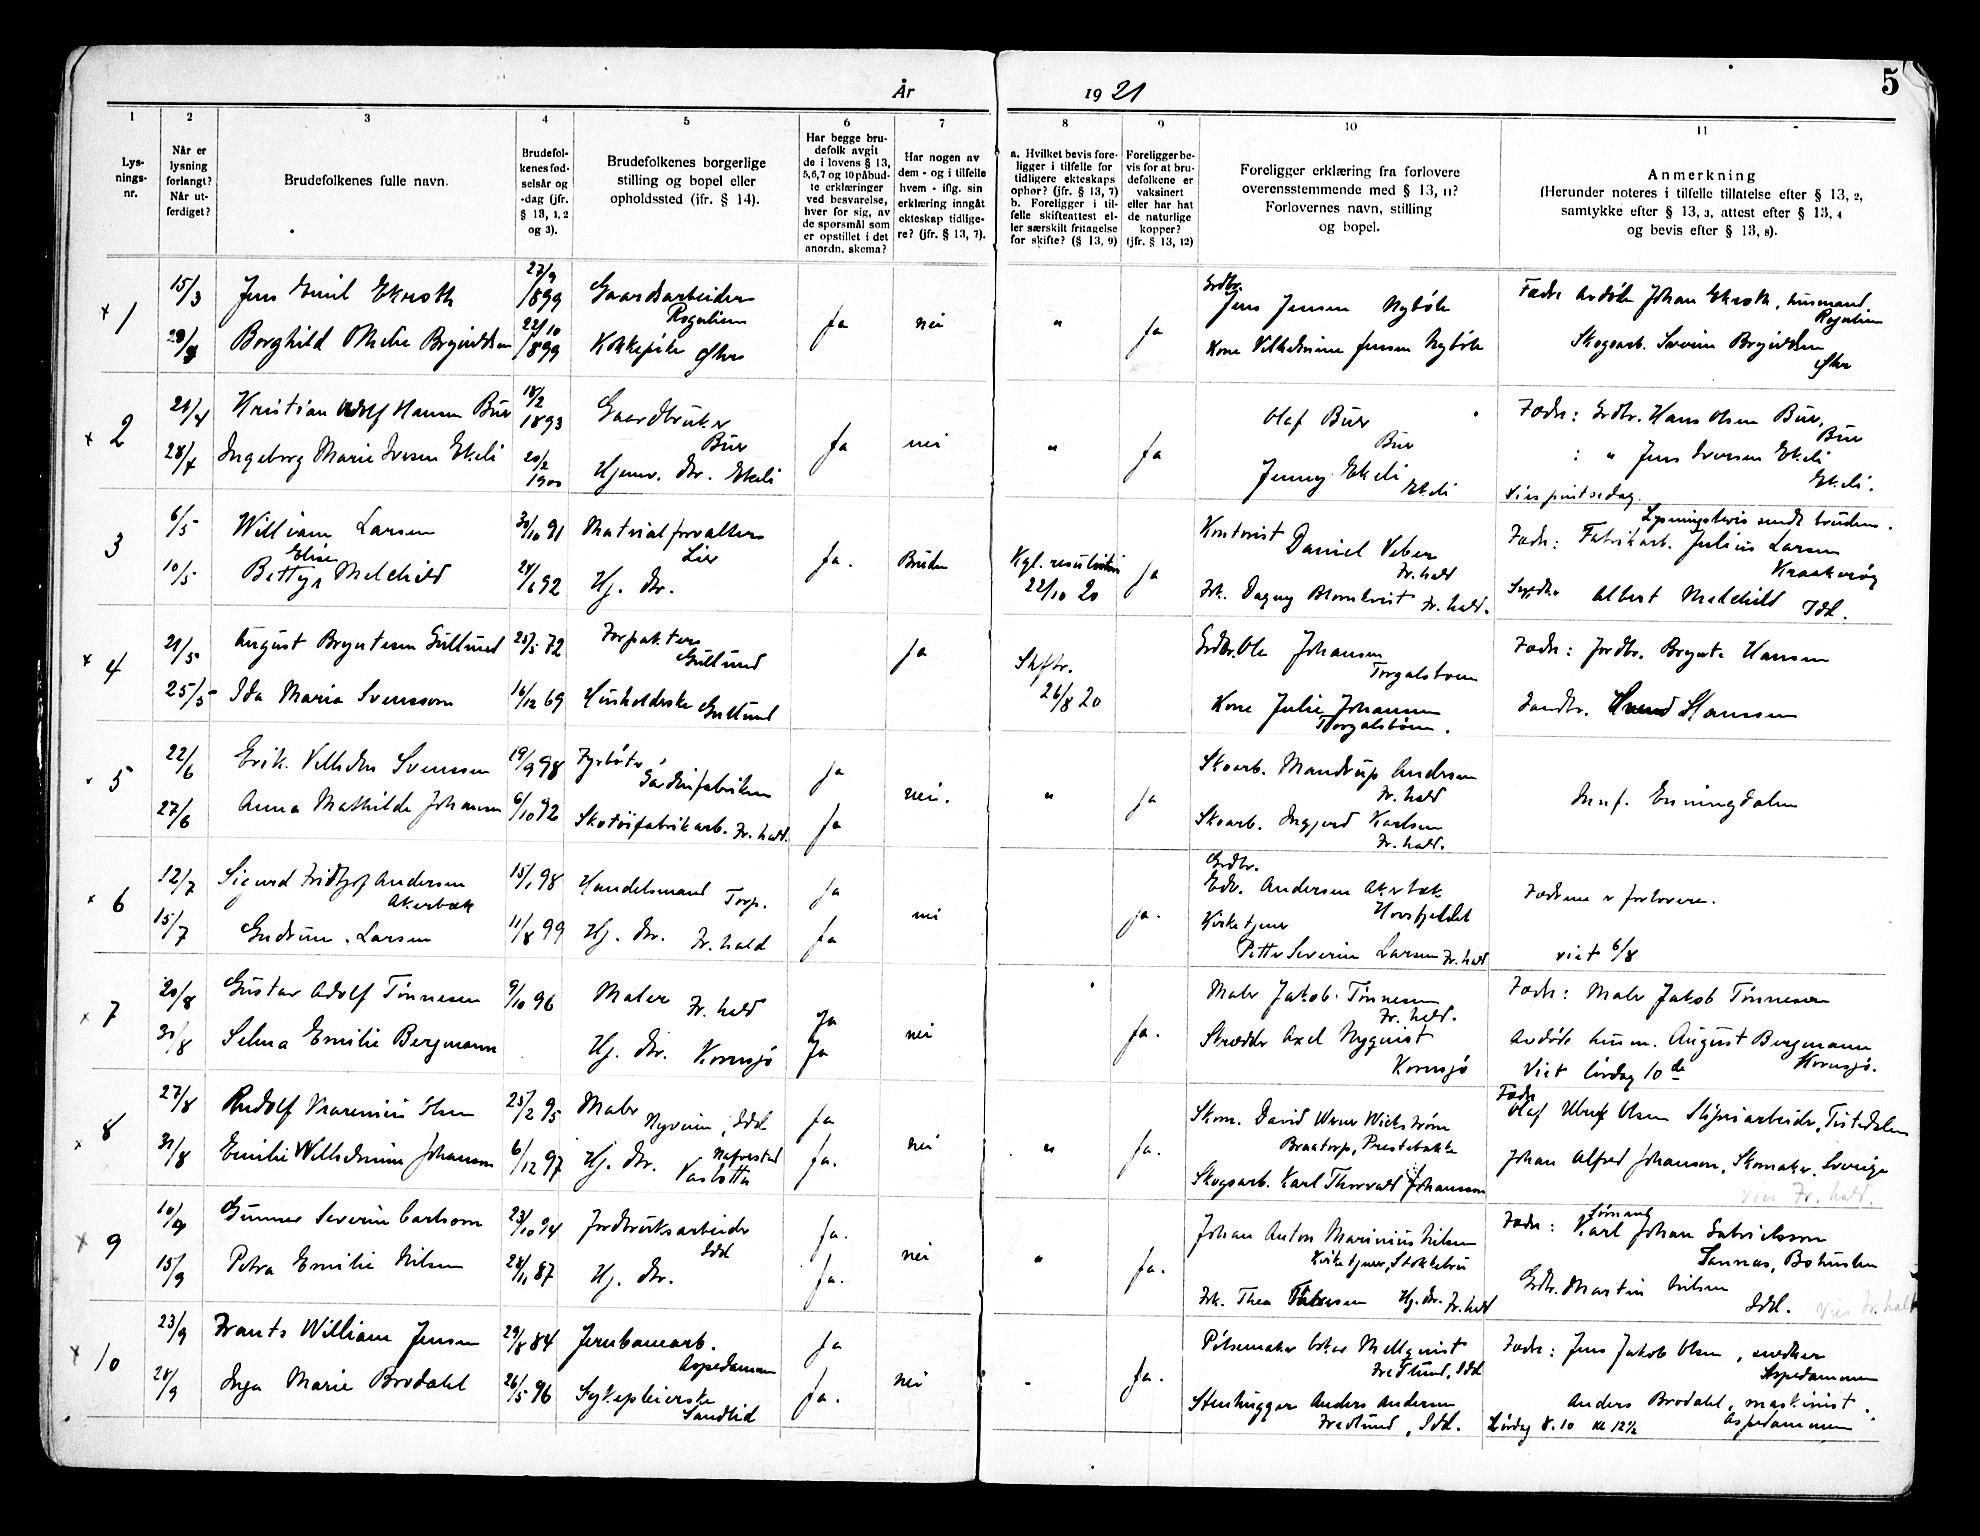 5
År 1921
1 2 3 4 5 6 7 8 9 10 11
Lys-
nings-
nr.
Når er
lysning
forlangt?
Når ut-
ferdiget?
Brudefolkenes fulle navn.
Brudefol-
kenes fød-
selsår og
-dag (jfr.
§ 13, 1, 2
og 3).
Brudefolkenes borgerlige
stilling og bopel eller
opholdssted (jfr. § 14).
Har begge bru-
defolk avgit
de i lovens § 13,
5,6,7 og 10 påbud-
te erklæringer
ved besvarelse,
hver for sig, av
de spørsmål som
er opstillet i det
anordn. skema?
Har nogen av
dem - og i tilfelle
hvem - iflg. sin
erklæring inngåt
ekteskap tidlige-
re? (jfr. § 13, 7).
a. Hvilket bevis fore-
ligger i tilfelle for
tidligere ekteskaps
ophør? (jfr. § 13, 7)
b. Foreligger i til-
felle skifteattest el-
ler særskilt fritagelse
for skifte? (§ 13, 9)
Foreligger be-
vis for at bru-
defolkene er
vaksinert
eller har hat
de naturlige
kopper?
(jfr. § 13, 12)
Foreligger erklæring fra forlovere
overensstemmende med § 13, 11?
Forlovernes navn, stilling
og bopel.
Anmerkning
(Herunder noteres i tilfelle tillatelse efter § 13, 2,
samtykke efter § 13, 3, attest efter § 13, 4
og bevis efter § 13, 8).
x 1
15/3 Jens Emil Ekroth 27/9 1899 Gaardsarbeider
Ja nei " Ja
Grdbr.
Jens Jensen Nybøle
Fader Avdøde Johan Ekroth, husmand
Borghild 22/10 1899 Kokkepike
Kone Vilhelmine Jensen Nybøle
Skogsarb.
x 2
21/4 Kristian Adolf Hansen Bur 18/2 1893 Gaardbruker
Bur
Ja nei " Ja
Olaf Bur
Bur
Fader: Grdbr. Hans Olsen Bur,
Bur
28/4 Ingeborg Marie Iversen Ekeli 20/2 1900 Hjemv. dtr. Ekeli
Jenny Ekeli
Ekeli
: " Jens Iversen Ekeli
Ekeli.
Vies pintsedag.
3
6/5 William Larsen 30/10 91 Materialforvalter
Lier
Ja. Bruden Kgl. resolution
22/10 20 Ja
Kontorist Daniel Veber
Fr.hald
Lysningsbevis sendt bruden.
Fader: Fabrikarb. Julius Larsen
Kraakerøy
10/5 Betty Elise Melchild 92 Hj. dtr.
Frk. Dagny Blomkvist Fr.hald.
Albert Melchild Idd.
x 4
21/5 August Gullund 25/5 72 Forpakter
Gullund
Ja Skftr.
26/8 20
Grdbr. Ole Johansen
Torgalsbøen
Fader: Jordbr. Hansen
25/5 Ida Maria Svensson 16/12 69 Husholderske Gullund
Kone Julie Johansen
Torgalsbøen.
Landbr. Hanssen
x 5
22/6 Erik Vilhelm Svensson 19/9 98 Fyrbøter
Gardinfabriken
Ja nei. " Ja
Skoarb. Mandrup Andersen
Fr.hald
Innf. Enningdalen
27/6 Anna Mathilde Johansen 6/10 92 Skotøifabrikarb. Fr.hald.
Ja
Skoarb. Ingjerd Karlsen
Fr.hald.
x 6
12/7 Sigurd Fridtjof Andersen
Akerbæk
15/1 98 Handelsmand Torp.
Ja nei Ja.
Grdbr.
Edv. Andersen Akerbæk
Fædrene er forlovere.
15/7 Gudrun Larsen 11/8 99 Hj. dtr. Fr.hald
Ja
Kirketjener
Petter Severin Larsen Fr.hald
viet 6/8
x 7
20/8 Gustav Adolf Tønnesen 9/10 96 Maler Fr.hald
Ja nei Ja.
Maler Jakob Tønnesen
Fr.hald.
Fader: Maler Jakob Tønnesen
31/8 Selma Emilie Bergmann Hj. dtr. Kornsjø
Ja
Skrædder Axel Nyquist
Kornsjø
Avdøde husm. August Bergmann
Kornsjø.
Viet lørdag 10de
x 8
27/8 Rudolf Olsen 25/2 95 Maler
Idd
Ja nei " Ja.
Skom. David Werner Wickstrøm
Braatorp, Prestebakke
Fader
Olaf Olsen Sliperiarbeider, Tistedalen
31/8 Emilie Wilhelmine Johanson 6/12 97 Hj. dtr.
Ja.
Skogsarb. Karl Thorvald Johansson
Johan Alfred Johanson, Skomaker, Sverige
vies Fr.hald.
x 9
10/9 Gunnar Severin Carlsson 23/10 94 Jordbruksarbeider
Idd
Ja. nei " Ja.
Johan Anton Marinius Nilsen
Kirketjener, Stokkebru
Fader: Karl Johan Gabrielsson
Sannäs, Bohuslen
15/9 Petra Emilie Nilsen 24/11 87 Hj. dtr.
Ja.
Frk. Thea Hj. dtr. Fr.hald
Grdbr. Martin Nilsen
Idd. Vies Fr.hald
x 10
23/9 Frants William Jensen 29/8 84 Jernbanearb.
Aspedammen
Ja nei Ja.
Pølsemaker Oskar Mellquist
Fredlund, Idd
Fader: Jens Jakob Olsen, snedker
Aspedammen
28/9 Inga Marie Brodahl 26/5 96 Sykepleierske
Sandlid
Ja.
Stenhugger Anders Andersen
Fredlund, Idd.
Anders Brodahl, maskinist.
Aspedammen
Lørdag 8.10 kl 12½